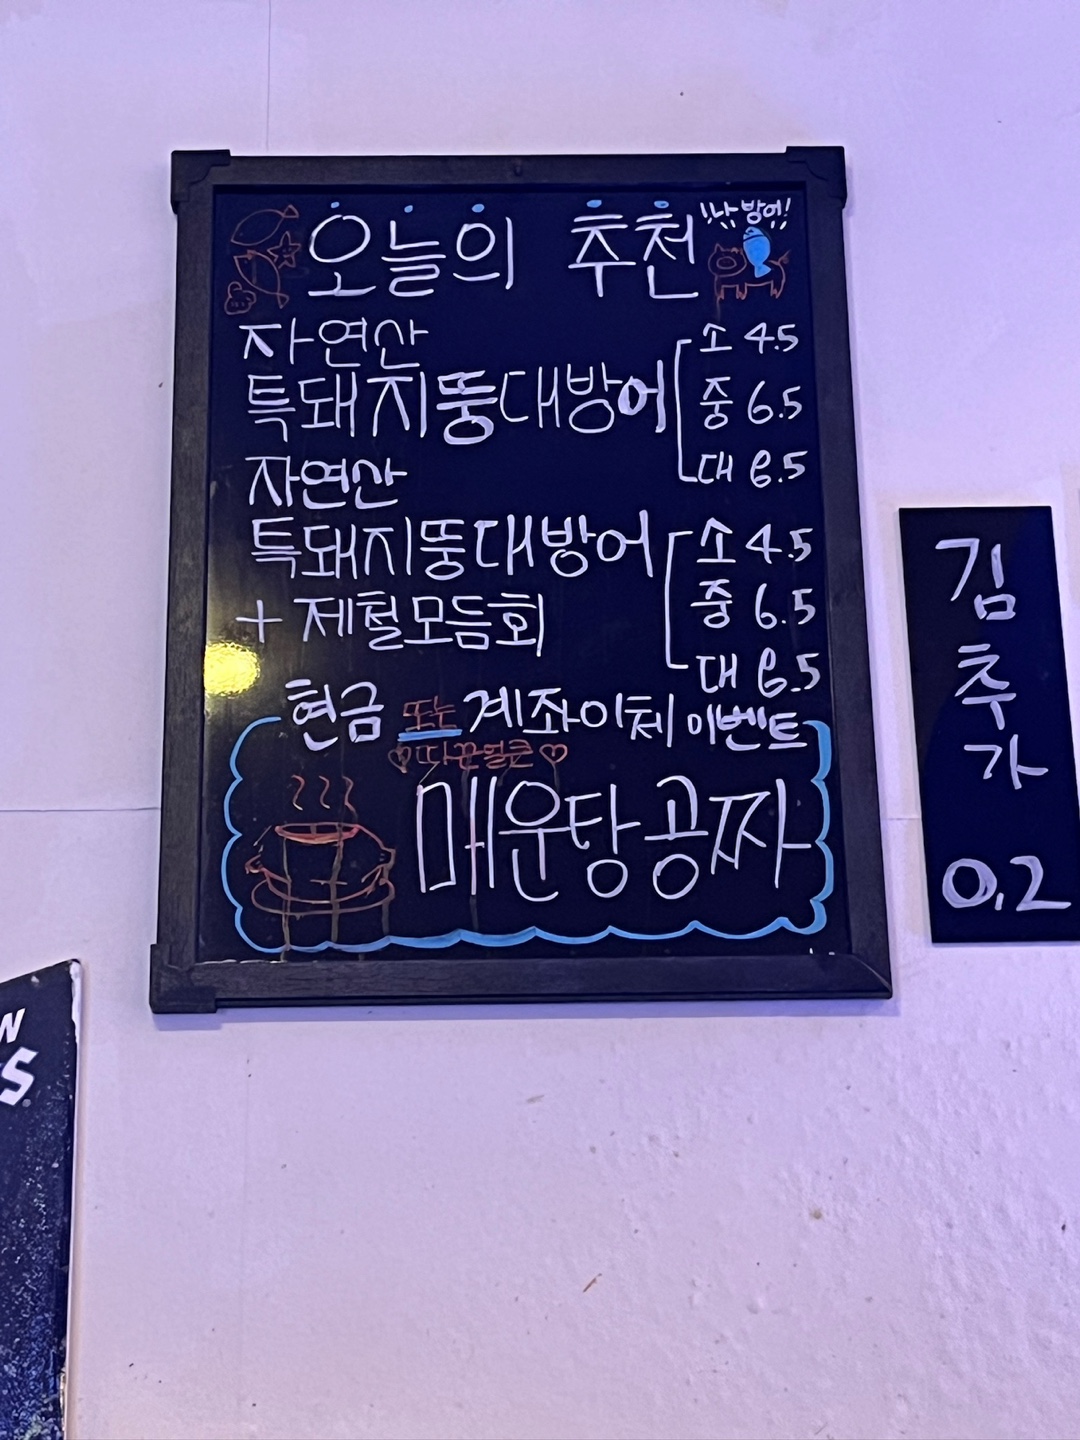 오늘의 추천
!나 방어!
자연산
특돼지뚱대방어
소 4.5
중 6.5
대 8.5
자연산
특돼지뚱대방어
+ 제철모듬회
소 4.5
중 6.5
대 8.5
현금 또는 계좌이체 이벤트
♡따끈얼큰♡
매운탕공짜
김
추
가
0.2